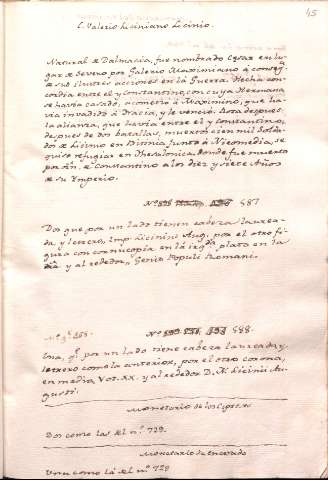 45
L. Valerio Liciniano Licinio.
Natural de Dalmacia, fue nombrado Cesar en lu-
gar de Severo por Galerio Maximiano à conseq.ª
de sus ilustres acciones en la Guerra. Hecha con-
cordia entre el y Constantino, con cuya Hermana
se havia casado, acometio à Maximino, que ha-
via invadido à Tracia, y le venció. Rota despues
la alianza, que havia entre el y Constantino,
despues de dos batallas, muertos cien mil Solda-
dos de Licinio en Bitinia junto à Nicomedia, se
quiso refugiar en Thesalonica, donde fue muerto
por ôn. de Constantino a los diez y siete Años
de su Imperio.
687
Dos que por un lado tienen cabeza laurea-
da y letrero, Imp. Licinius Aug. por el otro fi-
gura con cornucopia en la izq.da plato en la
dra. y al rededor, Genio Populi Romani.
688.
Una, q.e por un lado tiene cabeza laureada y
letrero como la anterior, por el otro corona,
en media, Vot. XX. y al rededor D. N. Licinii Au-
gusti.
Monetario de
Dos como las del n.º 729.
Monetario de
Una como la del n.º 729